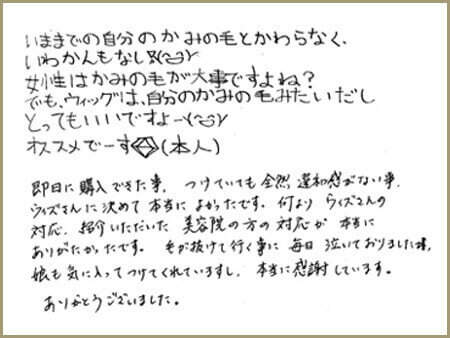 いままでの自分のかみの毛とかわらなく、
いわかんもなし
女性はかみの毛が大事ですよね？
でも、ウィッグは、自分のかみの毛みたいだし
とってもいいですよー
オススメでーす(本人)
即日に購入できた事、つけていても全然違和感がない事、
ウィズさんに決めて本当によかったです。何よりウィズさんの
対応、紹介いただいた美容院の方の対応が本当に
ありがたかったです。毛が抜けて行く事に毎日泣いておりました
娘も気に入ってつけてくれていますし、本当に感謝しています。
ありがとうございました。